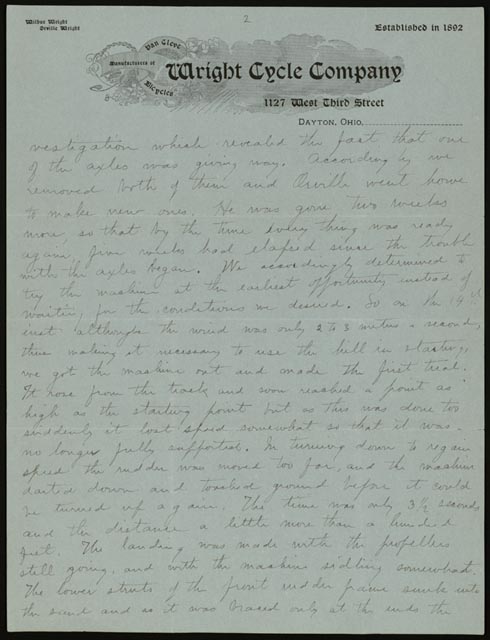 Wilbur Wright
Orville Wright
2
Established in 1892
Van Cleve
Manufacturers of
Bicycles
Wright Cycle Company
1127 West Third Street
DAYTON, OHIO,
vestigation which revealed the fact that one
of the axles was giving way. Accordingly we
removed both of them and Orville went home
to make new ones. He was gone two weeks
more, so that by the time every thing was ready
again, five weeks had elapsed since the trouble
with the axles began. We accordingly determined to
try the machine at the earliest opportunity instead of
waiting for the conditions we desired. So on the 14th
inst although the wind was only 2 to 3 meters a second,
thus making it necessary to use the hill in starting,
we got the machine out and made the first trial.
It rose from the track and soon reached a point as
high as the starting point but as this was done too
suddenly it lost speed somewhat so that it was
no longer fully supported. In turning down to regain
speed the rudder was moved too far, and the machine
darted down and touched ground before it could
be turned up again. The time was only 3½ seconds
and the distance a little more than a hundred
feet. The landing was made with the propellers
still going, and with the machine sidling somewhat.
The lower struts of the front rudder frame sunk into
the sand and as it was braced only at the ends the